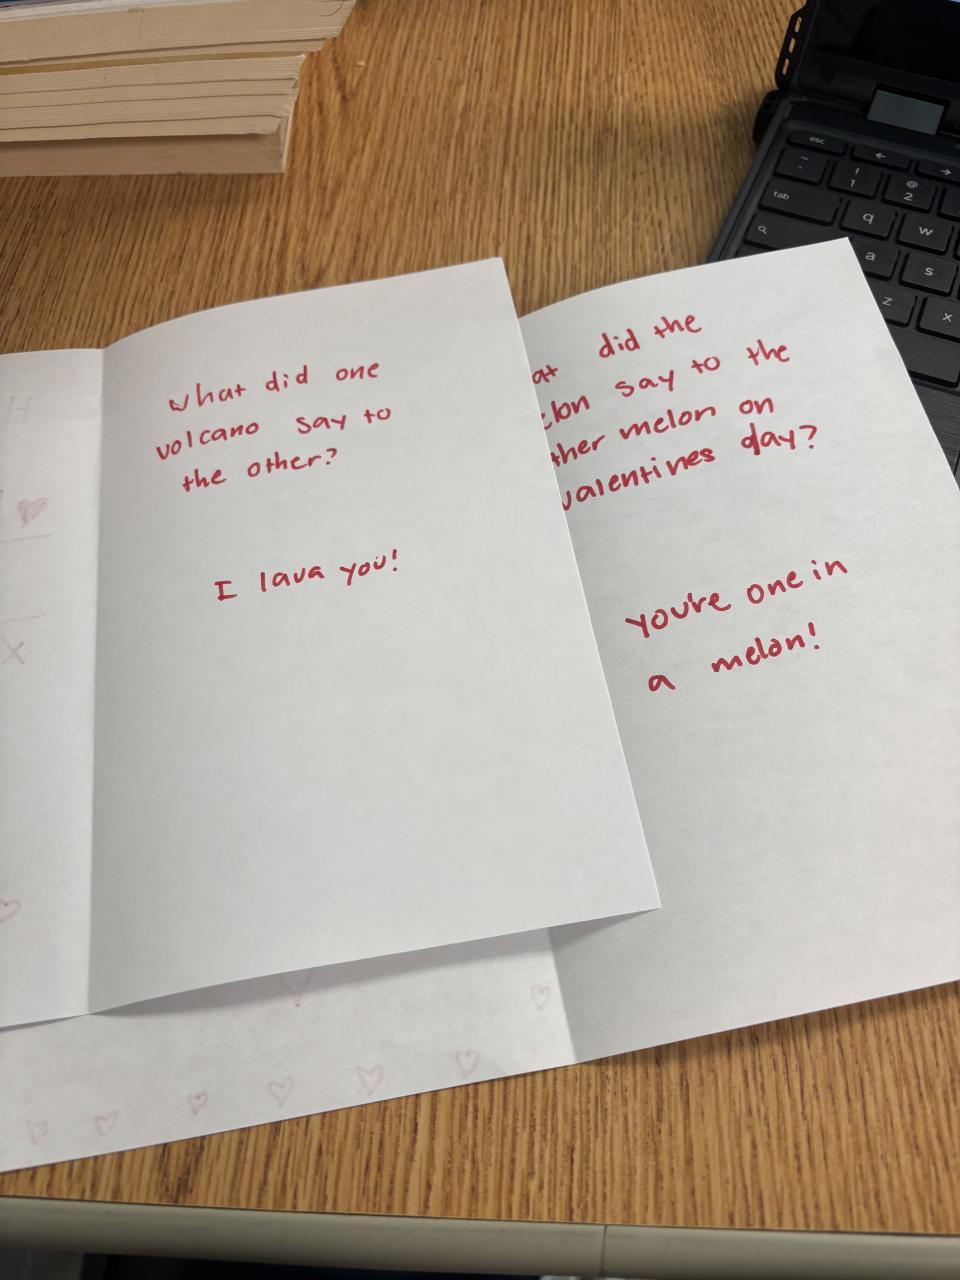 what did one
volcano say to
the other?
I lava you!
did the
say to the
melon on
valentines day?
you're one in
a melon!
esc
tab
~
!
1
@
2
q
w
a
s
z
x